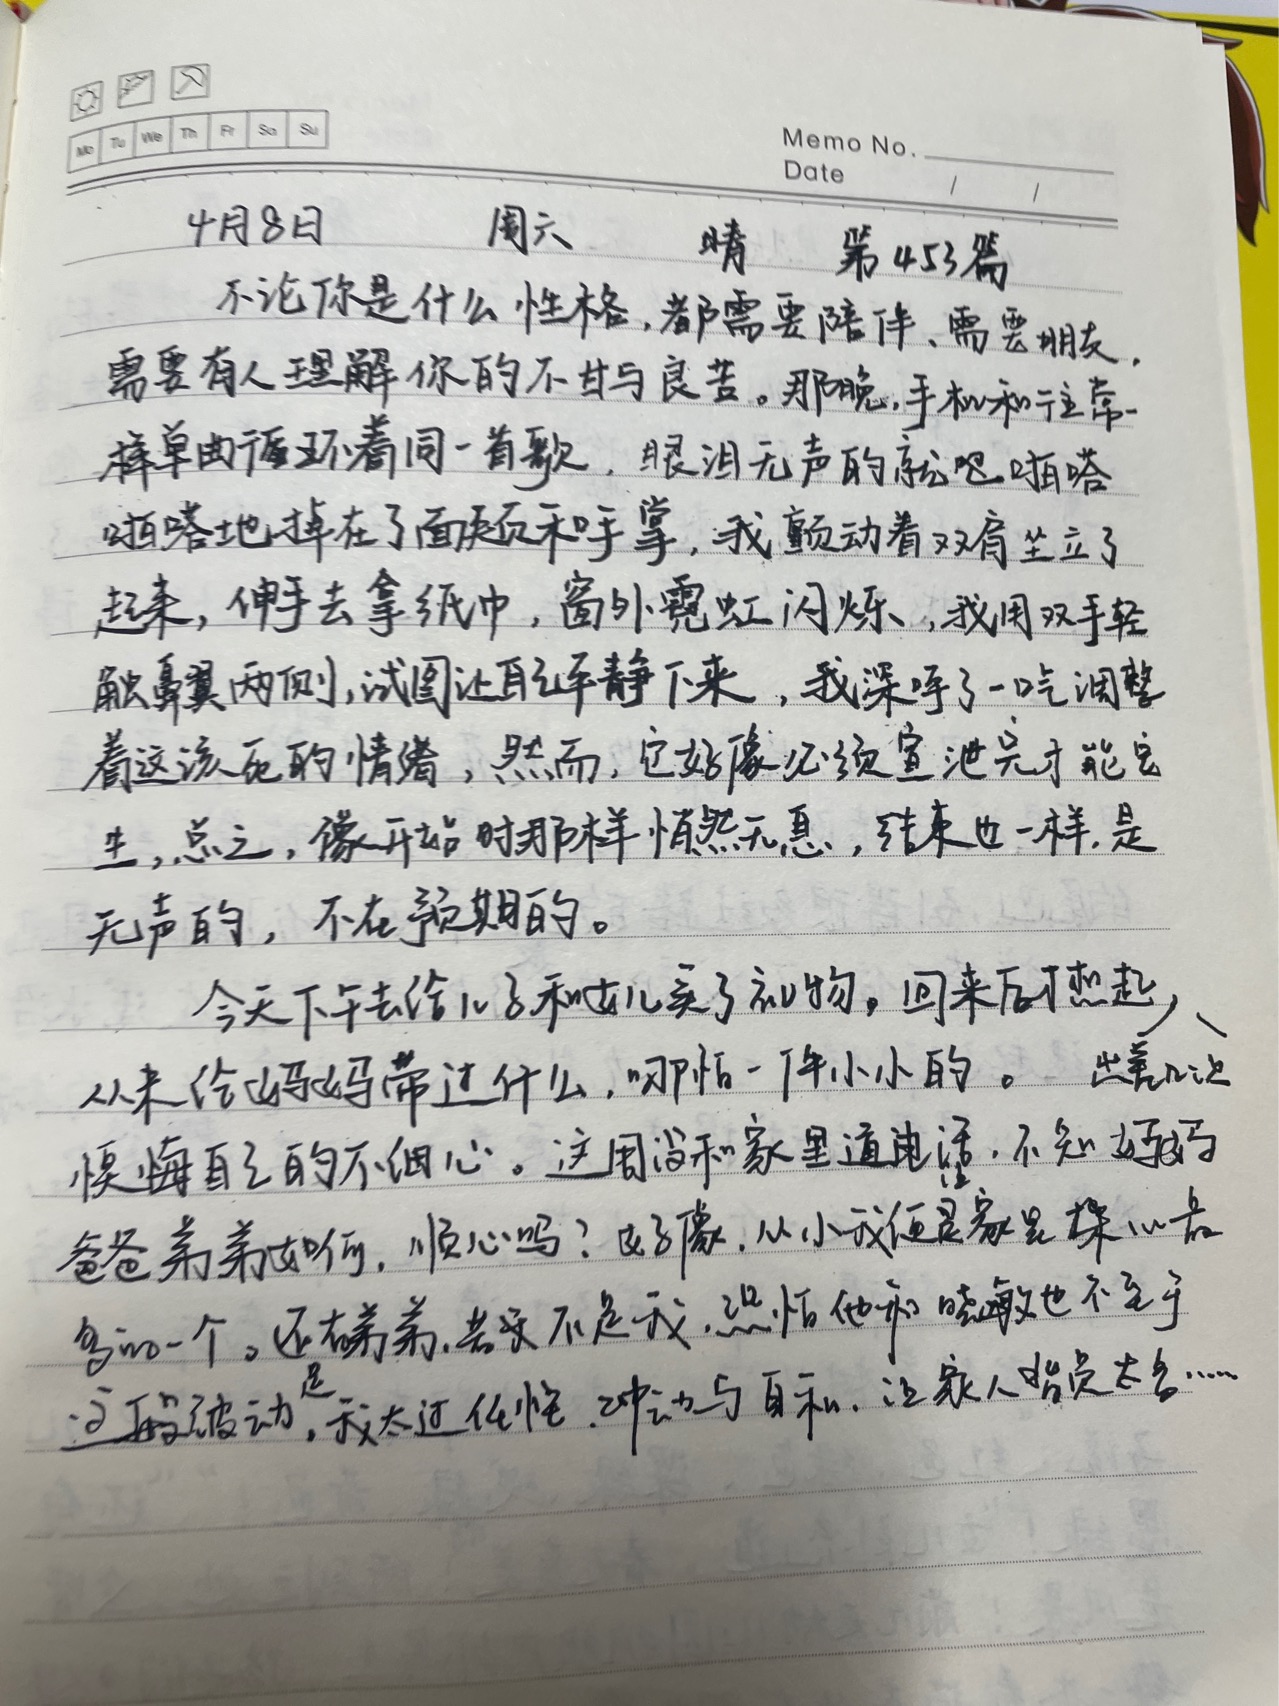 Mo Tu We Th Fr Sa Su
Memo No.
Date / /
4月8日 周六 晴 第453篇
不论你是什么性格,都需要陪伴、需要朋友,
需要有人理解你的不甘与良苦。那晚,手机和往常一
样单曲循环着同一首歌,眼泪无声的就吧嗒
啪嗒地掉在了面颊和手掌,我颤动着双肩坐立了
起来,伸手去拿纸巾,窗外霓虹闪烁,我用双手轻
触鼻翼两侧,试图让自己平静下来,我深呼了一口气调整
着这该死的情绪,然而,它好像必须宣泄完才能完
生,总之,像开始时那样悄然无息,结束也一样,是
无声的,不在预期的。
今天下午去给儿子和女儿买了礼物。回来后才想起,
出差几次
从未给妈妈带过什么,哪怕一件小小的。
懊悔自己的不细心。这周没和家里通电话,不知妈妈
爸爸弟弟如何,顺心吗?好像,从小我便是家里操心最
多的一个。还有弟弟,若不是我,恐怕他和晓敏也不至于
这般被动,是我太过任性、冲动与自私,让家人担负太多……